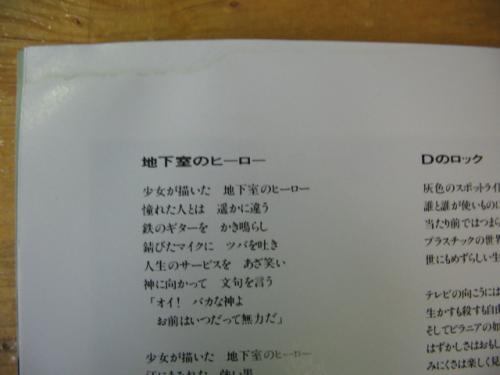 地下室のヒーロー
少女が描いた 地下室のヒーロー
憧れた人とは 遥かに違う
鉄のギターを かき鳴らし
錆びたマイクに ツバを吐き
人生のサービスを あざ笑い
神に向かって 文句を言う
「オイ! バカな神よ
お前はいつだって無力だ」
少女が描いた 地下室のヒーロー
Dのロック
灰色のスポットライト
誰と誰が使いものに
当たり前ではつまら
プラスチックの世界
世にもめずらしい生
テレビの向こうには
生かすも殺すも自由
そしてピラニアの如
はずかしさはおもし
みにくさは楽しく見